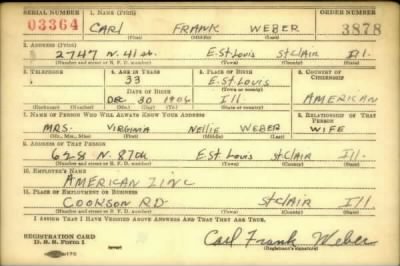 SERIAL NUMBER 1. NAME (Print) ORDER NUMBER
03364 CARL FRANK WEBER 3878
(First) (Middle) (Last)
2. ADDRESS (Print)
2747 N. 41 st. E. St. Louis St Clair Ill.
(Number and street or R. F. D. number) (Town) (County) (State)
3. TELEPHONE 4. AGE IN YEARS 5. PLACE OF BIRTH 6. COUNTRY OF CITIZENSHIP
33 E. St. Louis
DATE OF BIRTH (Town or county)
Dec 30 1906 Ill AMERICAN
(Exchange) (Number) (Mo.) (Day) (Yr.) (State or country)
7. NAME OF PERSON WHO WILL ALWAYS KNOW YOUR ADDRESS 8. RELATIONSHIP OF THAT PERSON
MRS. VIRGINIA Nellie WEBER WIFE
(Mr., Mrs., Miss) (First) (Middle) (Last)
9. ADDRESS OF THAT PERSON
628 N. 87th E. St. Louis St Clair Ill.
(Number and street or R. F. D. number) (Town) (County) (State)
10. EMPLOYER'S NAME
AMERICAN ZINC
11. PLACE OF EMPLOYMENT OR BUSINESS
COOKSON RD. St Clair Ill
(Number and street or R. F. D. number) (Town) (County) (State)
I AFFIRM THAT I HAVE VERIFIED ABOVE ANSWERS AND THAT THEY ARE TRUE.
REGISTRATION CARD
D. S. S. Form 1 Carl Frank Weber
(Registrant's signature)